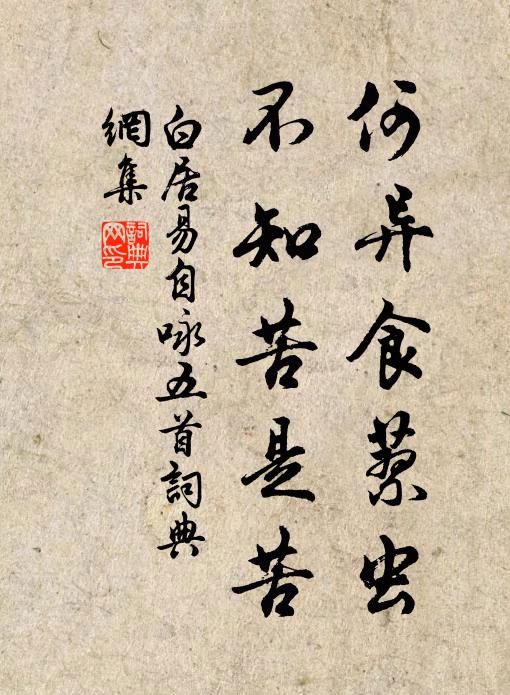 何异食蓼虫
不知苦是苦
白居易自咏五首詞典
網集
詞典
网印